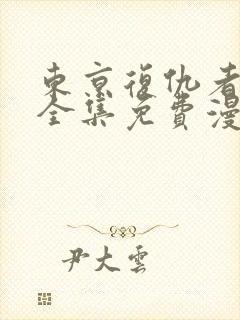 東京復仇者
全集免費漫
尹大雲